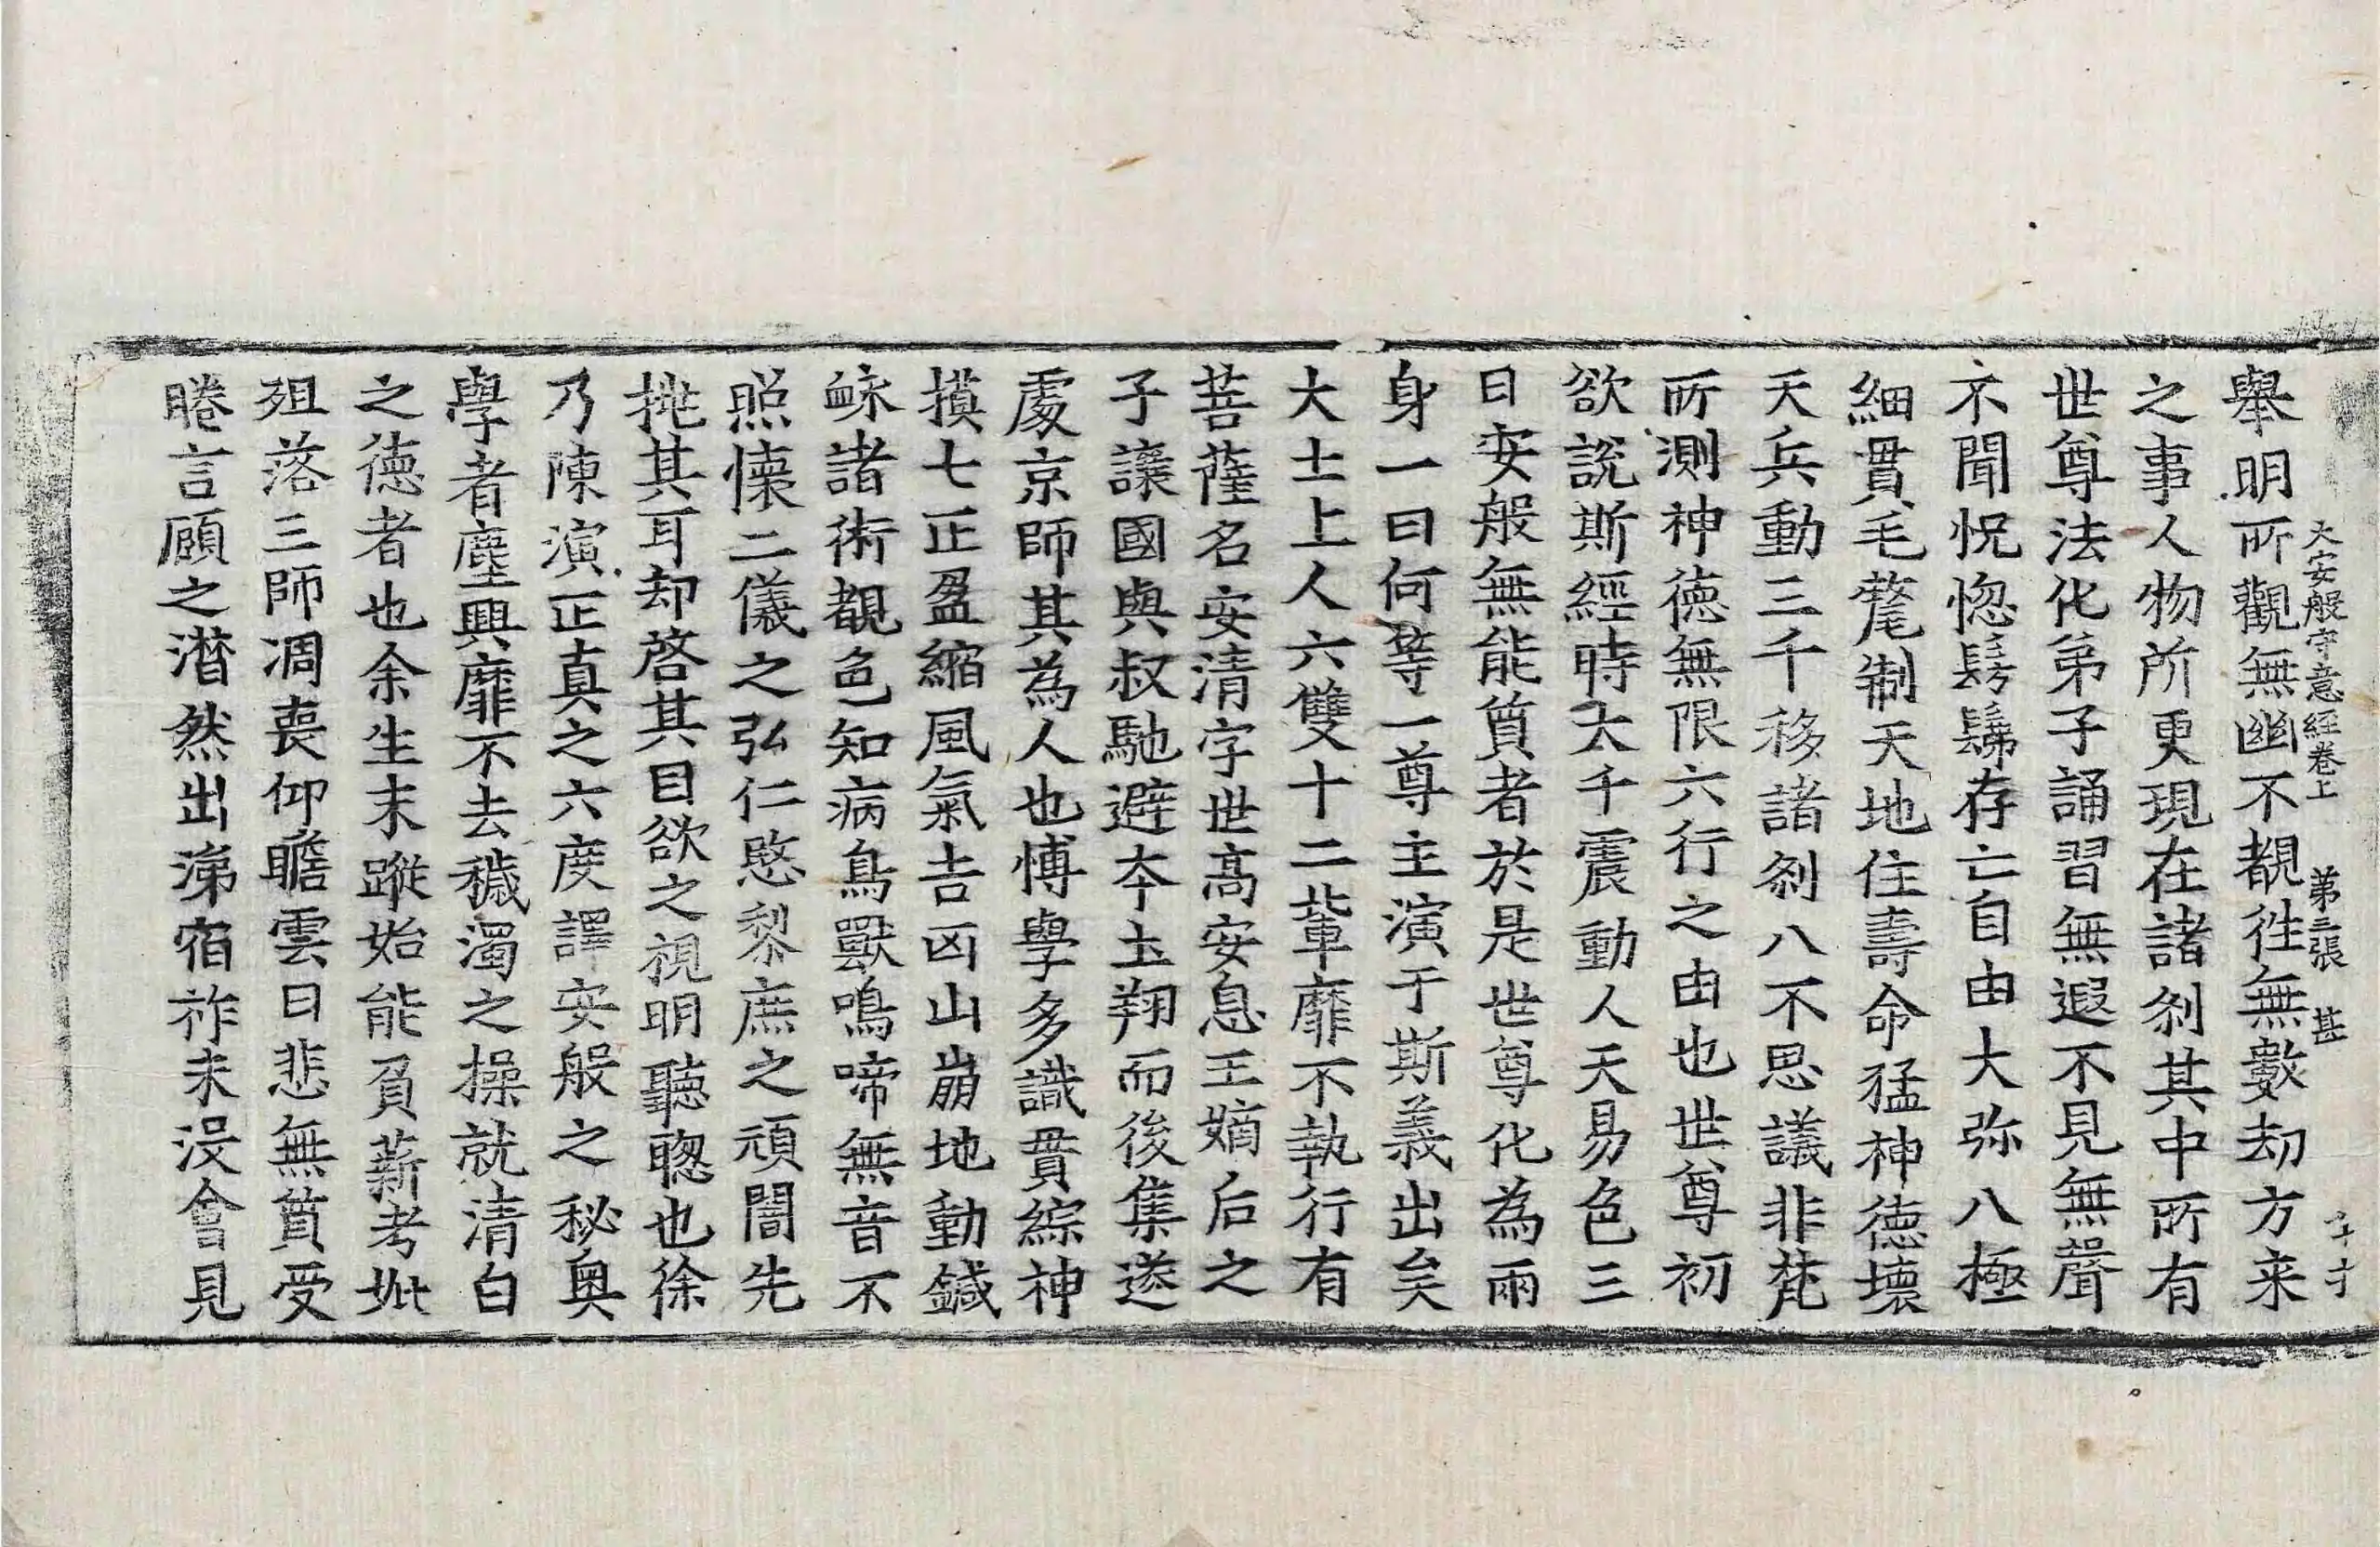 大安般守意經卷上 第三張 甚
舉明所觀無幽不覩徃無數劫方来
之事人物所更現在諸刹其中所有
世尊法化弟子誦習無遐不見無聲
不聞怳惚髣髴存亡自由大弥八極
細貫毛氂制天地住壽命猛神德壞
天兵動三千移諸刹八不思議非梵
所測神德無限六行之由也世尊初
欲說斯經時大千震動人天易色三
日安般無能質者於是世尊化為兩
身一曰何等一尊主演于斯義出矣
大士上人六雙十二輩靡不執行有
菩薩名安清字世高安息王嫡后之
子讓國與叔馳避本土翔而後集遂
處京師其為人也博學多識貫綜神
摸七正盈縮風氣吉凶山崩地動鍼
䘑諸術覩色知病鳥獸鳴啼無音不
照懷二儀之弘仁愍黎庶之頑闇先
挑其耳却啓其目欲之視明聽聦也徐
乃陳演正真之六度譯安般之秘奥
學者塵興靡不去穢濁之操就清白
之德者也余生末蹤始能負薪考妣
殂落三師凋喪仰瞻雲日悲無質受
睠言顧之潜然出涕宿祚未没會見